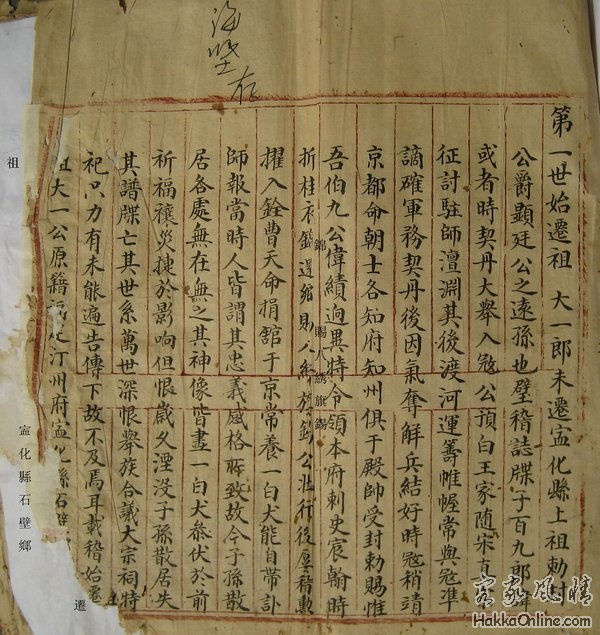 海堅存
第一世始遷祖 大一郎未遷寍化縣上祖勅封
公爵顯廷公之遠孫也壁稽誌牒子百九郎諱
或者時契丹大舉入寇公預白王家随宋真
征討駐師澶淵其後渡河運籌帷幄常與寇準
謫確軍務契丹後因氣奪解兵結好時寇稍靖
京都命朝士各知府知州俱于殿師受封勅賜惟
吾伯九公偉績逈異特令領本府刺史宸翰時
錦 賜八綉旗錫
折桂衣錦還
賜 公壯行後屢稽勳
擢入銓曹天命捐舘于京常養一白犬能自帶訃
師報當時人皆謂其忠義感格所致故今子孫散
居各處無在無之其神像皆畫一白犬叅伏於前
祈福禳災捷於影响但恨歲久湮没子孫散居失
其譜牒亡其世系萬世深恨舉族合議大宗祠特
祀只力有未能遍告傳下故不及焉耳載稽始遷
祖大一公原籍福建汀州府寍化縣石壁
祖
寍化縣石壁鄉
遷
客家風情
HakkaOnline.com